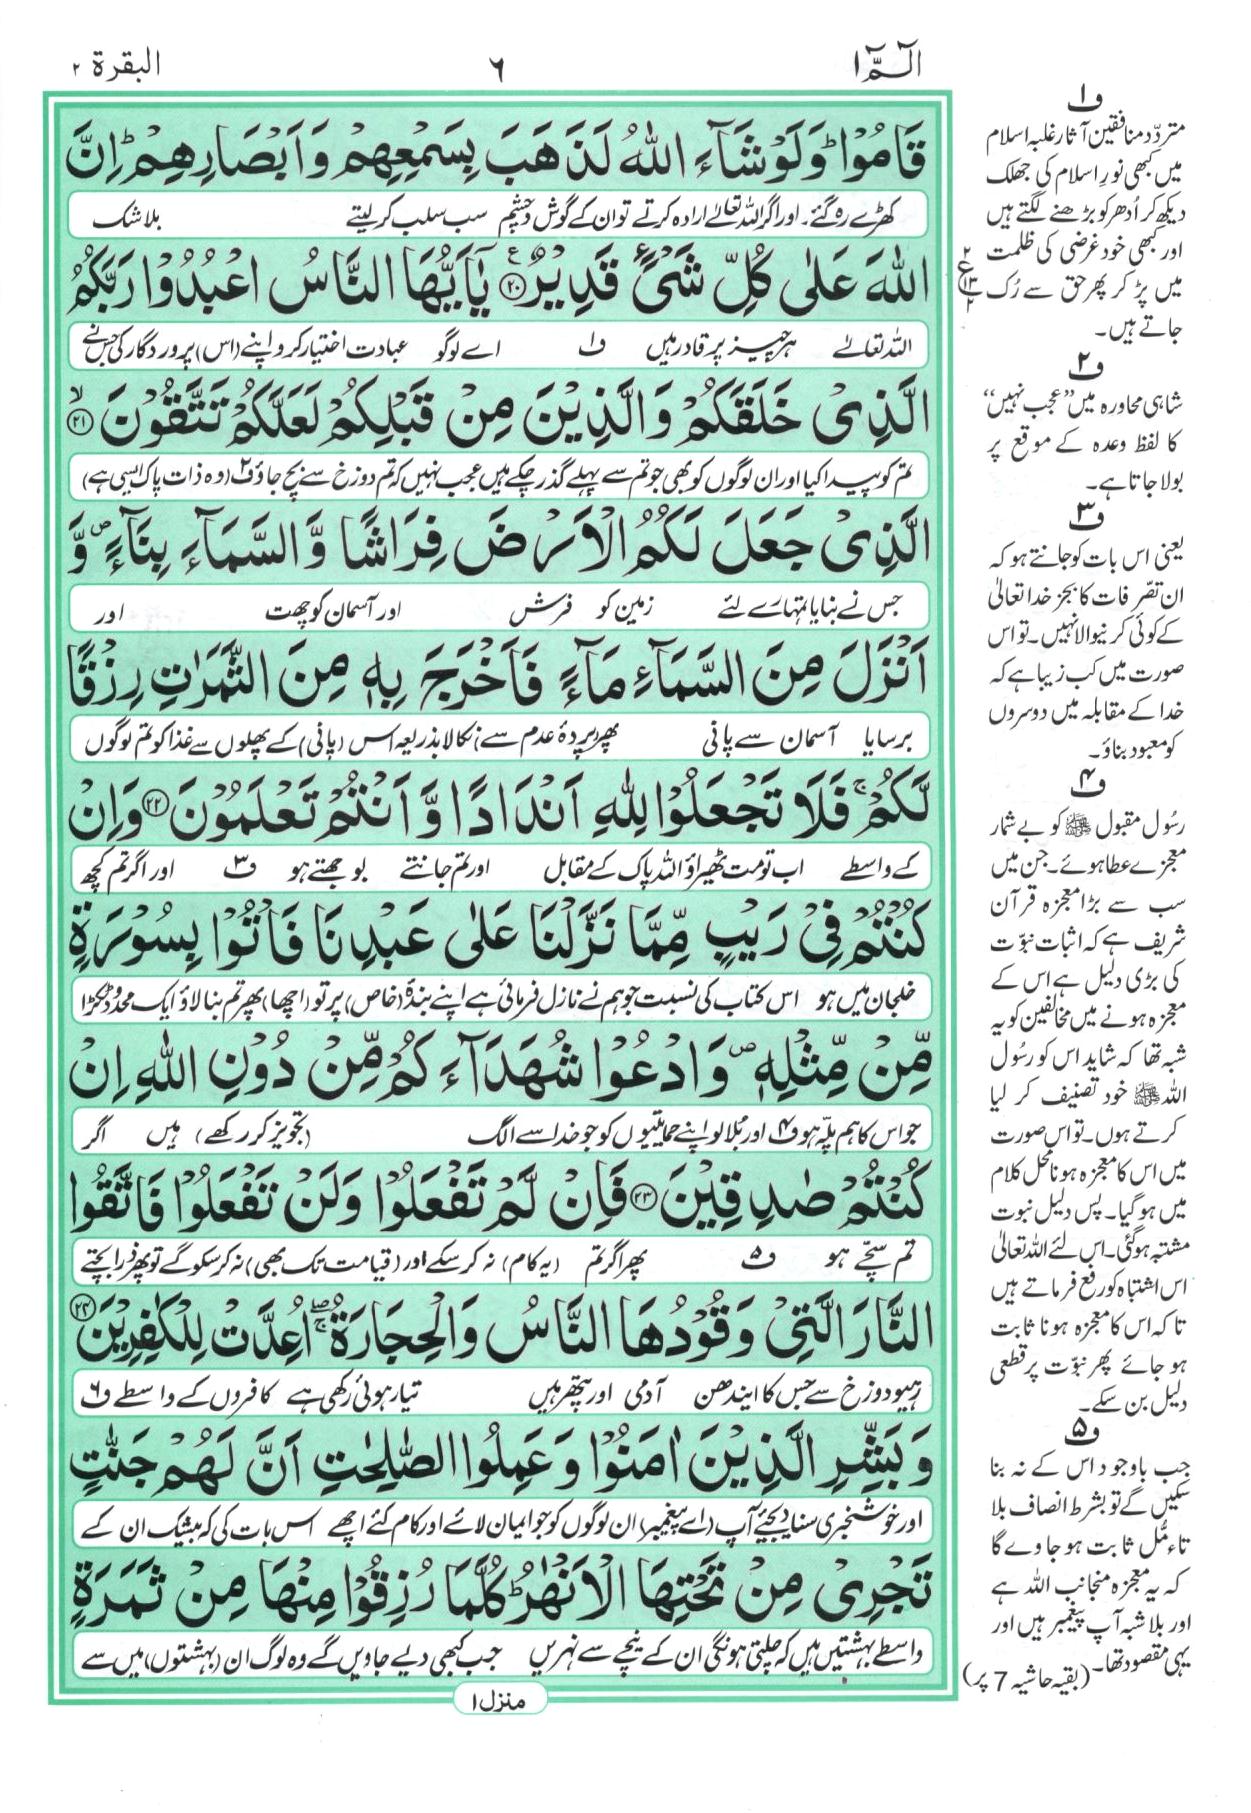 الٓمّٓ ١
٦
البقرة ٢
قَامُوْا ؕ وَلَوْ شَآءَ اللّٰهُ لَذَهَبَ بِسَمْعِهِمْ وَاَبْصَارِهِمْ ؕ اِنَّ
کھڑے رہ گئے۔ اور اگر اللہ تعالےٰ ارادہ کرتے تو ان کے گوش و چشم سب سلب کر لیتے بلاشک
اللّٰهَ عَلٰى كُلِّ شَىْءٍ قَدِيْرٌ ۧ‏﴿۲۰﴾ يٰٓاَيُّهَا النَّاسُ اعْبُدُوْا رَبَّكُمُ
اللہ تعالےٰ ہر چیز پر قادر ہیں ف۱ اے لوگو عبادت اختیار کرو اپنے (اس) پروردگار کی جس نے
الَّذِىْ خَلَقَكُمْ وَالَّذِيْنَ مِنْ قَبْلِكُمْ لَعَلَّكُمْ تَتَّقُوْنَ ۙ‏﴿۲۱﴾
تم کو پیدا کیا اور ان لوگوں کو بھی جو تم سے پہلے گذر چکے ہیں عجب نہیں کہ تم دوزخ سے بچ جاؤ ف۲ (وہ ذات پاک ایسی ہے)
الَّذِىْ جَعَلَ لَكُمُ الْاَرْضَ فِرَاشًا وَّالسَّمَآءَ بِنَآءً ۖ وَّ
جس نے بنایا تمہارے لئے زمین کو فرش اور آسمان کو چھت اور
اَنْزَلَ مِنَ السَّمَآءِ مَآءً فَاَخْرَجَ بِهٖ مِنَ الثَّمَرٰتِ رِزْقًا
برسایا آسمان سے پانی پھر (پردۂ عدم سے) نکالا بذریعہ اس (پانی) کے پھلوں سے غذا کو تم لوگوں
لَّكُمْ ۚ فَلَا تَجْعَلُوْا لِلّٰهِ اَنْدَادًا وَّاَنْتُمْ تَعْلَمُوْنَ ﴿۲۲﴾ وَاِنْ
کے واسطے اب تو مت ٹھیراؤ اللہ پاک کے مقابل اور تم جانتے بوجھتے ہو ف۳ اور اگر تم کچھ
كُنْتُمْ فِىْ رَيْبٍ مِّمَّا نَزَّلْنَا عَلٰى عَبْدِنَا فَاْتُوْا بِسُوْرَةٍ
خلجان میں ہو اس کتاب کی نسبت جو ہم نے نازل فرمائی ہے اپنے بندۂ (خاص) پر تو (اچھا) پھر تم بنا لاؤ ایک محدود ٹکڑا
مِّنْ مِّثْلِهٖ ۖ وَادْعُوْا شُهَدَآءَكُمْ مِّنْ دُوْنِ اللّٰهِ اِنْ
جو اس کا ہم پلہ ہو ف۴ اور بلا لو اپنے حمایتیوں کو جو خدا سے الگ (تجویز کر رکھے) ہیں اگر
كُنْتُمْ صٰدِقِيْنَ ﴿۲۳﴾ فَاِنْ لَّمْ تَفْعَلُوْا وَلَنْ تَفْعَلُوْا فَاتَّقُوا
تم سچے ہو ف۵ پھر اگر تم (یہ کام) نہ کر سکے اور (قیامت تک بھی) نہ کر سکو گے تو پھر ذرا بچتے
النَّارَ الَّتِىْ وَقُوْدُهَا النَّاسُ وَالْحِجَارَةُ ۖۚ اُعِدَّتْ لِلْكٰفِرِيْنَ ﴿۲۴﴾
رہیو دوزخ سے جس کا ایندھن آدمی اور پتھر ہیں تیار ہوئی رکھی ہے کافروں کے واسطے ف۶
وَبَشِّرِ الَّذِيْنَ اٰمَنُوْا وَعَمِلُوا الصّٰلِحٰتِ اَنَّ لَهُمْ جَنّٰتٍ
اور خوشخبری سنا دیجئے آپ (اے پیغمبر) ان لوگوں کو جو ایمان لائے اور کام کئے اچھے اس بات کی کہ بیشک ان کے
تَجْرِىْ مِنْ تَحْتِهَا الْاَنْهٰرُ ؕ كُلَّمَا رُزِقُوْا مِنْهَا مِنْ ثَمَرَةٍ
واسطے بہشتیں ہیں کہ چلتی ہونگی ان کے نیچے سے نہریں جب کبھی دیے جاویں گے وہ لوگ ان (بہشتوں) میں سے
منزل ۱
ف۱
متردّد منافقین آثار غلبہ اسلام
میں کبھی نورِ اسلام کی جھلک
دیکھ کر اُدھر کو بڑھنے لگتے ہیں
اور کبھی خود غرضی کی ظلمت
میں پڑ کر پھر حق سے رُک
جاتے ہیں۔
ف۲
شاہی محاورہ میں "عجب نہیں"
کا لفظ وعدہ کے موقع پر
بولا جاتا ہے۔
ف۳
یعنی اس بات کو جانتے ہو کہ
ان تصّرفات کا بجز خدا تعالیٰ
کے کوئی کرنیوالا نہیں۔ تو اس
صورت میں کب زیبا ہے کہ
خدا کے مقابلہ میں دوسروں
کو معبود بناؤ۔
ف۴
رسُول مقبول ﷺ کو بے شمار
معجزے عطا ہوئے۔ جن میں
سب سے بڑا معجزہ قرآن
شریف ہے کہ اثبات نبوّت
کی بڑی دلیل ہے اس کے
معجزہ ہونے میں مخالفین کو یہ
شبہ تھا کہ شاید اس کو رسُول
اللہ ﷺ خود تصنیف کر لیا
کرتے ہوں۔ تو اس صورت
میں اس کا معجزہ ہونا محل کلام
میں ہو گیا۔ پس دلیل نبوت
مشتبہ ہو گئی۔ اس لئے اللہ تعالیٰ
اس اشتباہ کو رفع فرماتے ہیں
تاکہ اس کا معجزہ ہونا ثابت
ہو جائے پھر نبوّت پر قطعی
دلیل بن سکے۔
ف۵
جب باوجود اس کے نہ بنا
سکیں گے تو بشرط انصاف بلا
تاءمُّل ثابت ہو جاوے گا
کہ یہ معجزہ منجانب اللہ ہے
اور بلاشبہ آپ پیغمبر ہیں اور
یہی مقصود تھا۔ (بقیہ حاشیہ 7 پر)